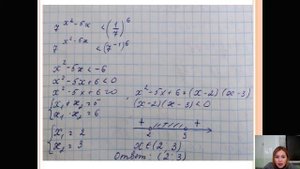 7^(x²-5x) < (1/7)^6
7^(x²-5x) < (7^-1)^6
x²-5x < -6
x²-5x+6 < 0
x²-5x+6=0
{ x₁+x₂=5
x₁·x₂=6
{ x₁=2
x₂=3
x²-5x+6=(x-2)(x-3)
(x-2)(x-3)<0
+ - +
2 3
x∈(2,3)
Ответ: (2,3)